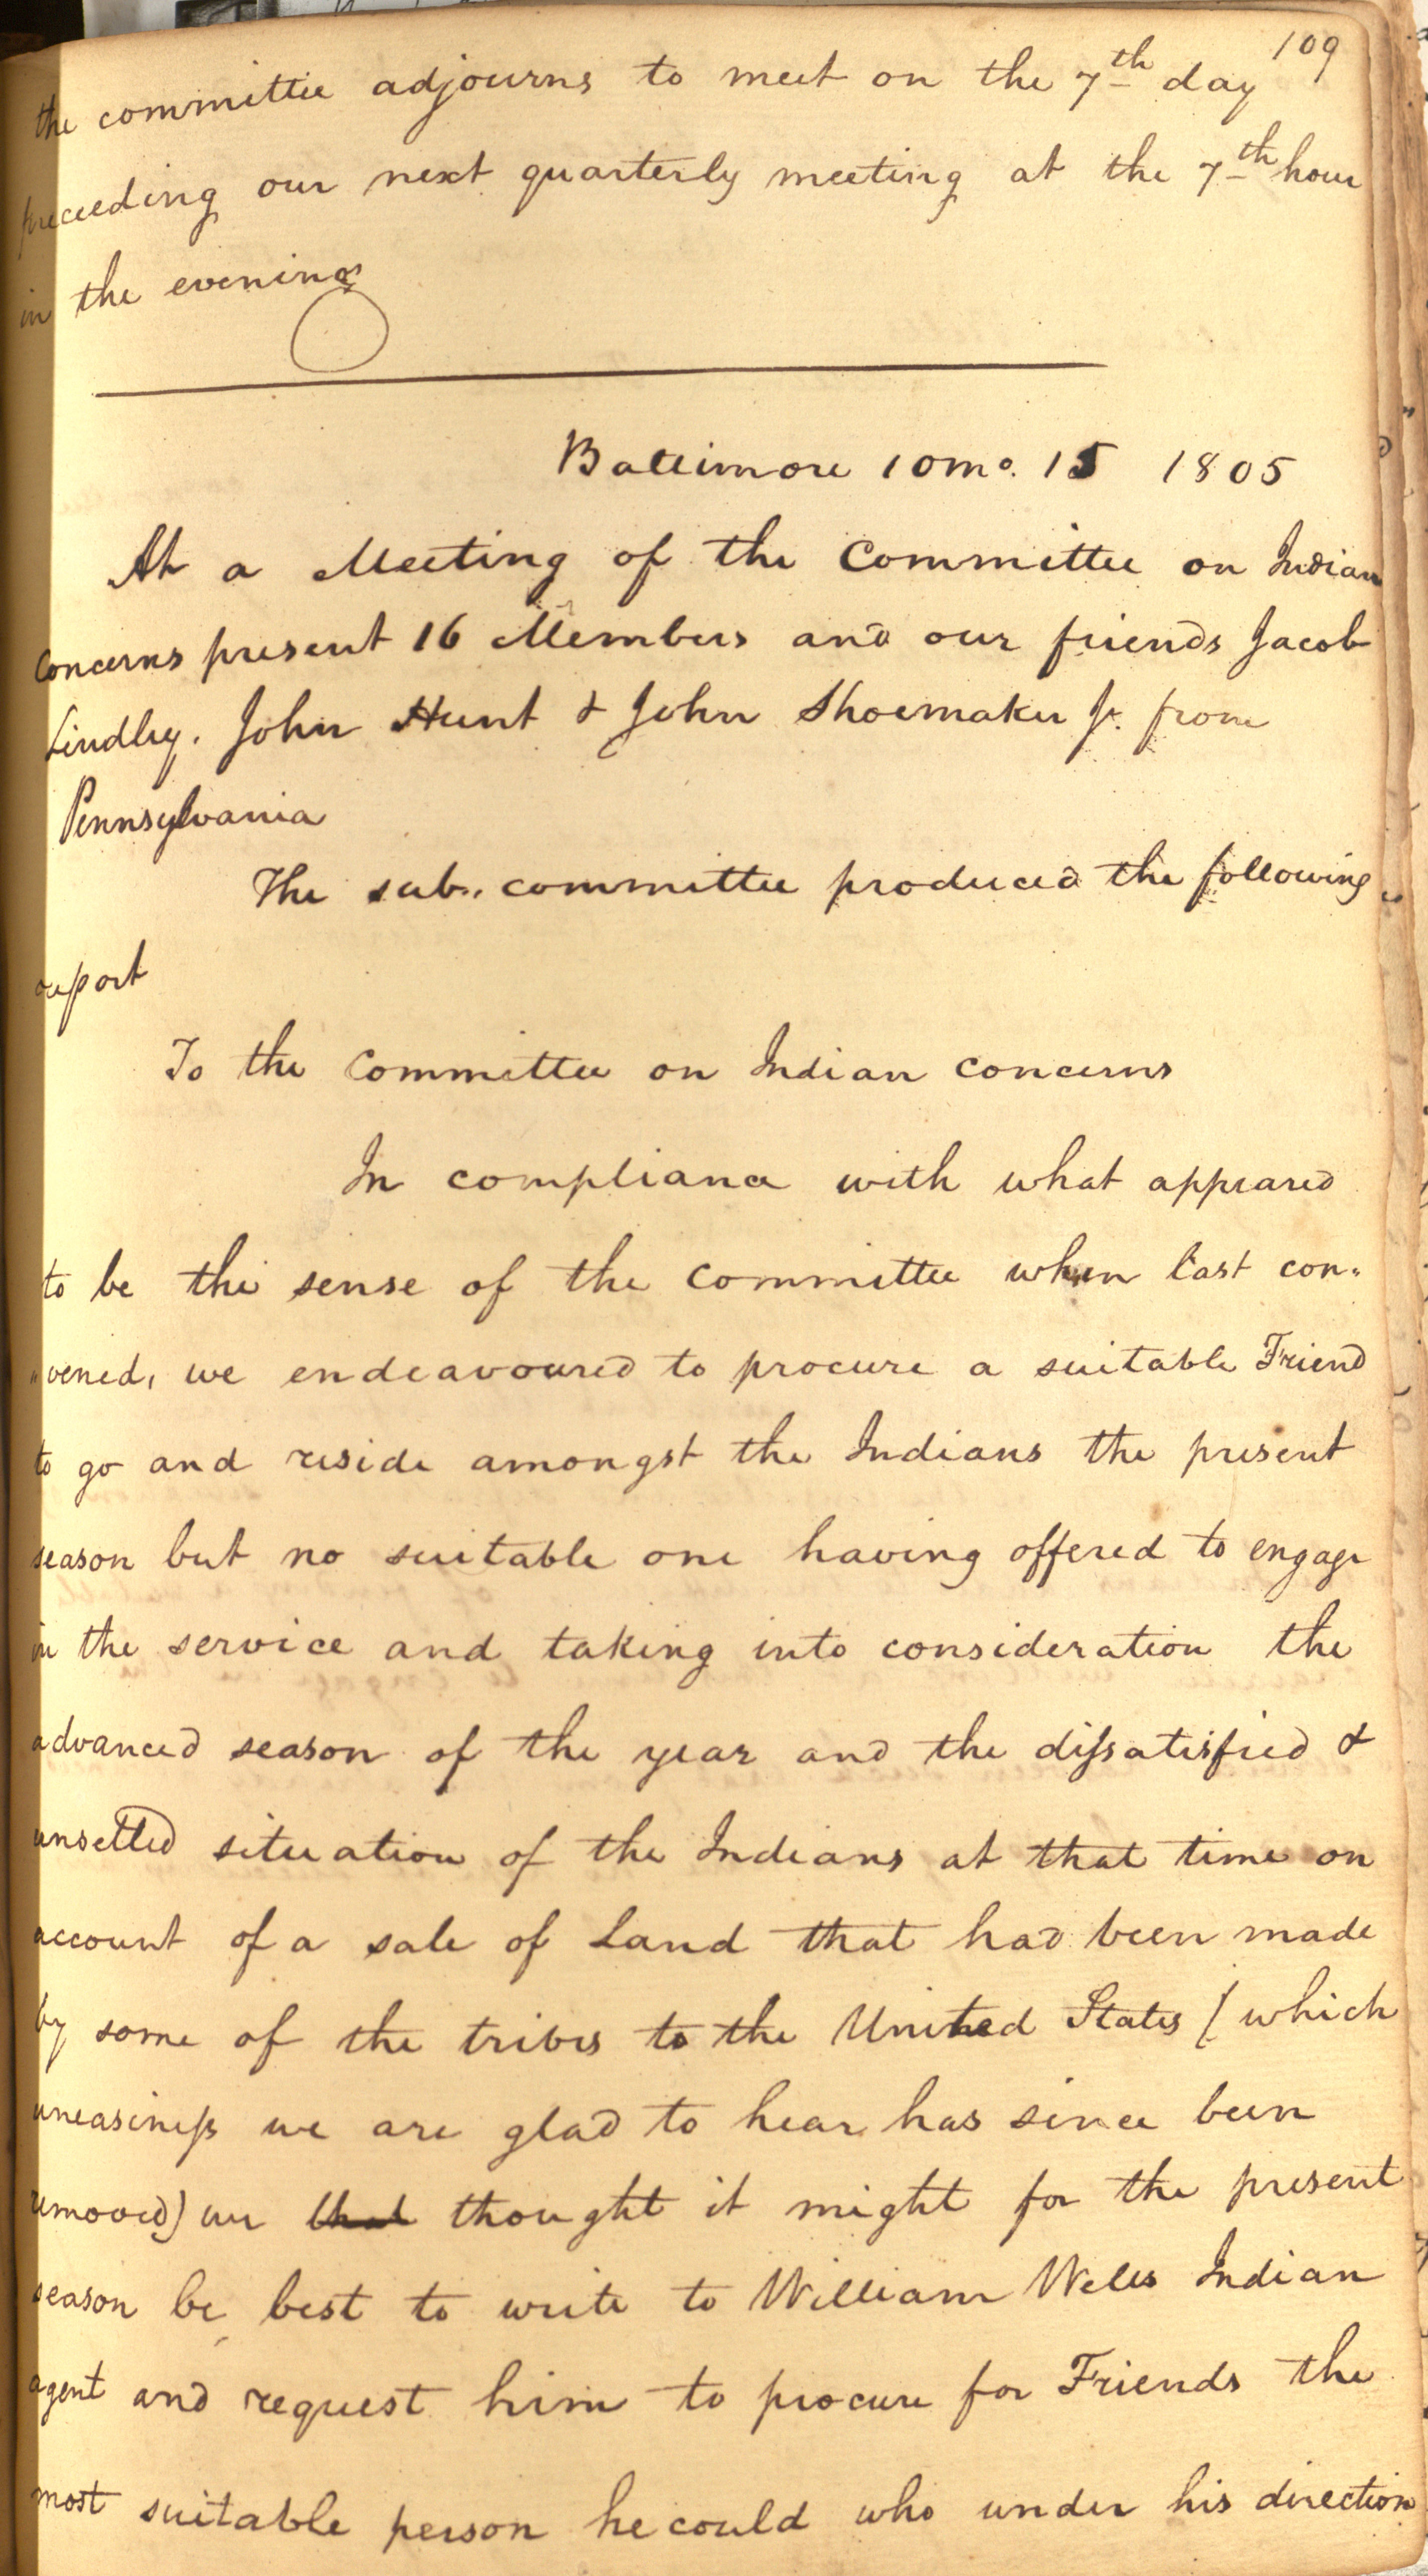 109
the committee adjourns to meet on the 7th day
preceeding our next quarterly meeting at the 7th hour
in the evening
Baltimore 10mo. 15 1805
At a Meeting of the Committee on Indian
Concerns present 16 Members and our friends Jacob
Lindley. John Hunt & John Shoemaker Jr. from
Pennsylvania
The sub. committee produced the following
report
To the Committee on Indian Concerns
In compliance with what appeared
to be the sense of the Committee when last con„
„vened, we endeavoured to procure a suitable Friend
to go and reside amongst the Indians the present
season but no suitable one having offered to engage
in the service and taking into consideration the
advanced season of the year and the dissatisfied &
unsettled situation of the Indians at that time on
account of a sale of Land that had been made
by some of the tribes to the United States (which
uneasiness we are glad to hear has since been
removed) we that thought it might for the present
season be best to write to William Wells Indian
agent and request him to procure for Friends the
most suitable person he could who under his direction